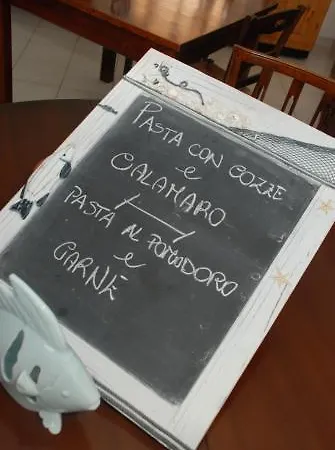 PASTA CON COZZE
e
CALAMARO
PASTA AL POMODORO
e
CARNÈ